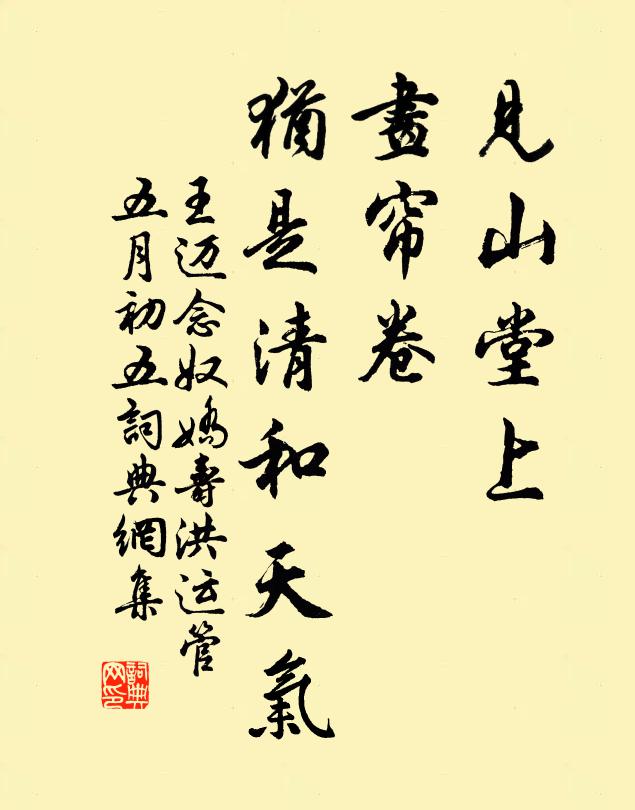 見山堂上
畫帘卷
猶是清和天氣
王迈念奴嬌壽洪运管
五月初五詞典網集
詞典
网印